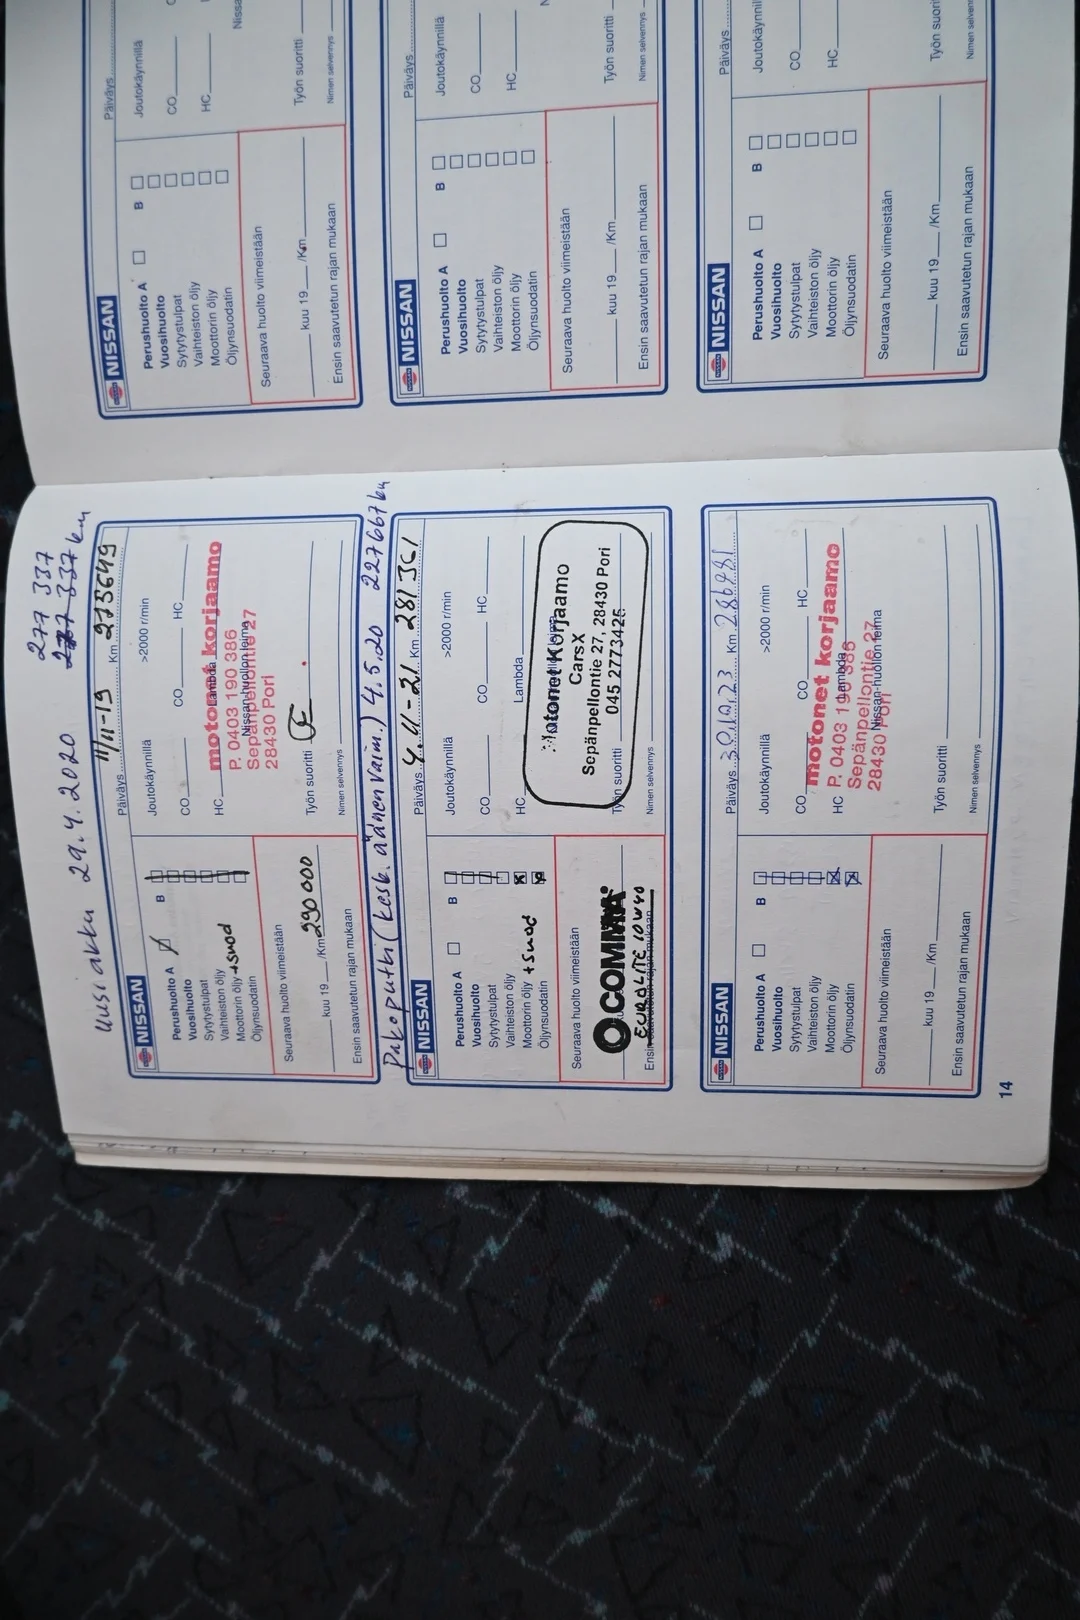 277 337
Uusi akku 29.4.2020 277 337 km
NISSAN
Päiväys 11/11-19 Km 273649
Perushuolto A B
Vuosihuolto
Sytytystulpat
Vaihteiston öljy
Moottorin öljy +suod
Öljynsuodatin
Joutokäynnillä >2000 r/min
CO CO HC
HC Lambda
motonet korjaamo
P. 0403 190 386
Sepänpellontie 27
28430 Pori
Nissan-huollon leima
Seuraava huolto viimeistään
kuu 19 /Km 290 000
Ensin saavutetun rajan mukaan
Työn suoritti
Nimen selvennys
Pakoputki (kesk. äänenvaim.) 4.5.20 227667 km
NISSAN
Päiväys 4.11-21 Km 281 361
Perushuolto A B
Vuosihuolto
Sytytystulpat
Vaihteiston öljy
Moottorin öljy +suod
Öljynsuodatin
Joutokäynnillä >2000 r/min
CO CO HC
HC Lambda
Motonet Korjaamo
CarsX
Sepänpellontie 27, 28430 Pori
045 2773425
Seuraava huolto viimeistään
COMMA
EUROLITE 10W40
Ensin saavutetun rajan mukaan
Työn suoritti
Nimen selvennys
NISSAN
Päiväys Km
Perushuolto A B
Vuosihuolto
Sytytystulpat
Vaihteiston öljy
Moottorin öljy
Öljynsuodatin
Joutokäynnillä >2000 r/min
CO CO HC
HC Lambda
motonet korjaamo
P. 0403 190 386
Sepänpellontie 27
28430 Pori
Nissan-huollon leima
Seuraava huolto viimeistään
kuu 19 /Km
Ensin saavutetun rajan mukaan
Työn suoritti
Nimen selvennys
14
NISSAN
Päiväys
Perushuolto A B
Vuosihuolto
Sytytystulpat
Vaihteiston öljy
Moottorin öljy
Öljynsuodatin
Joutokäynnillä
CO
HC
Seuraava huolto viimeistään
kuu 19 /Km
Ensin saavutetun rajan mukaan
Työn suoritti
Nimen selvennys
NISSAN
Päiväys
Perushuolto A B
Vuosihuolto
Sytytystulpat
Vaihteiston öljy
Moottorin öljy
Öljynsuodatin
Joutokäynnillä
CO
HC
Seuraava huolto viimeistään
kuu 19 /Km
Ensin saavutetun rajan mukaan
Työn suoritti
Nimen selvennys
NISSAN
Päiväys
Perushuolto A B
Vuosihuolto
Sytytystulpat
Vaihteiston öljy
Moottorin öljy
Öljynsuodatin
Joutokäynnil
CO
HC
Seuraava huolto viimeistään
kuu 19 /Km
Ensin saavutetun rajan mukaan
Työn suorit
Nimen selven